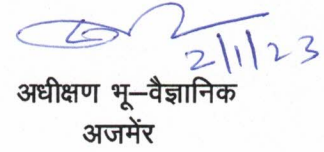 2/1/23
अधीक्षण भू–वैज्ञानिक
अजमेंर